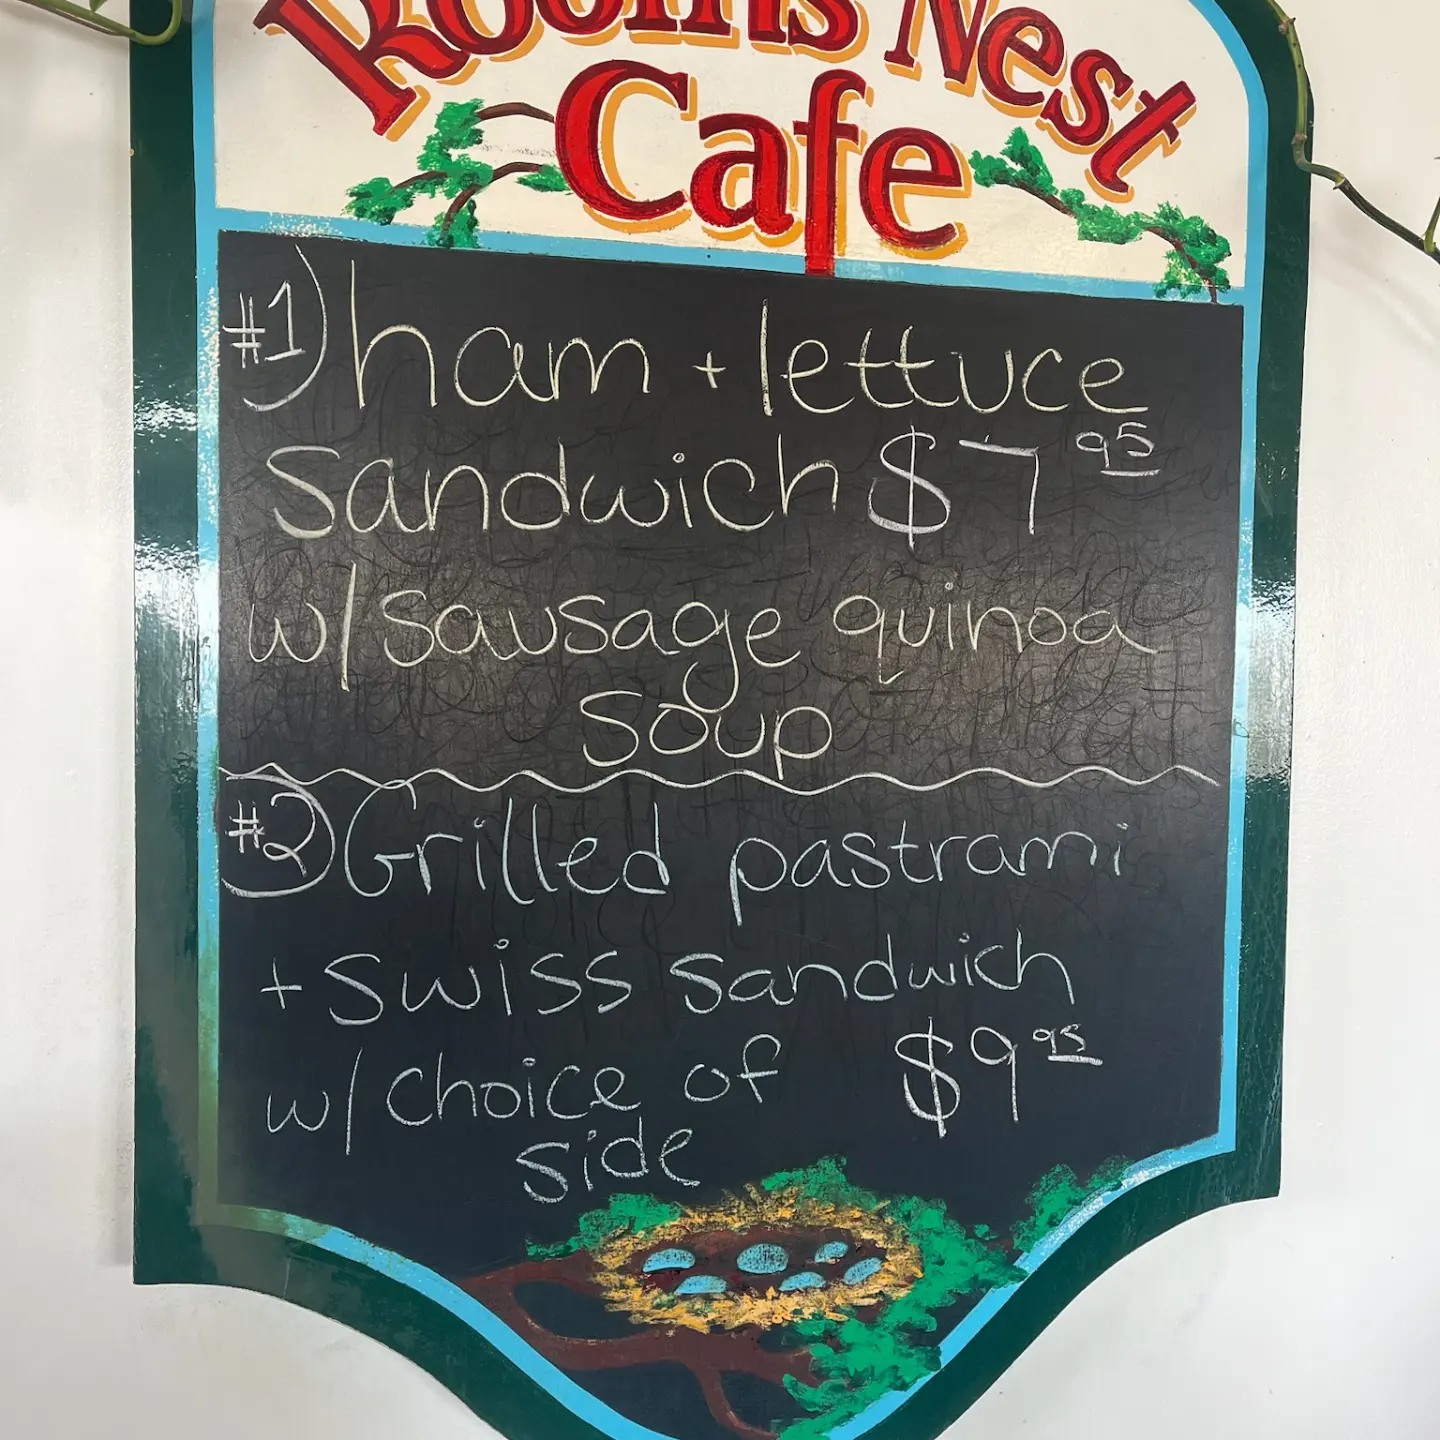 Rooms Nest
Cafe
#1) ham + lettuce
sandwich $7 95
w/ sausage quinoa
soup
#2) Grilled pastrami
+ swiss sandwich
w/ choice of $9 95
side